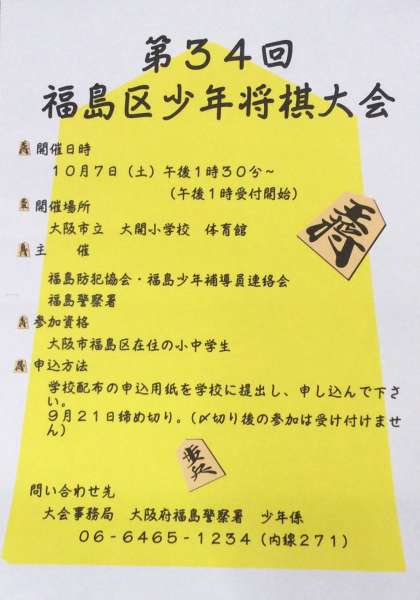 第３４回
福島区少年将棋大会
開催日時
１０月７日（土）午後１時３０分～
（午後１時受付開始）
開催場所
大阪市立　大開小学校　体育館
主　　催
福島防犯協会・福島少年補導員連絡会
福島警察署
参加資格
大阪市福島区在住の小中学生
申込方法
学校配布の申込用紙を学校に提出し、申し込んで下さ
い。
９月２１日締め切り。（〆切り後の参加は受け付けませ
ん）
王将
歩兵
問い合わせ先
大会事務局　大阪府福島警察署　少年係
０６－６４６５－１２３４（内線２７１）